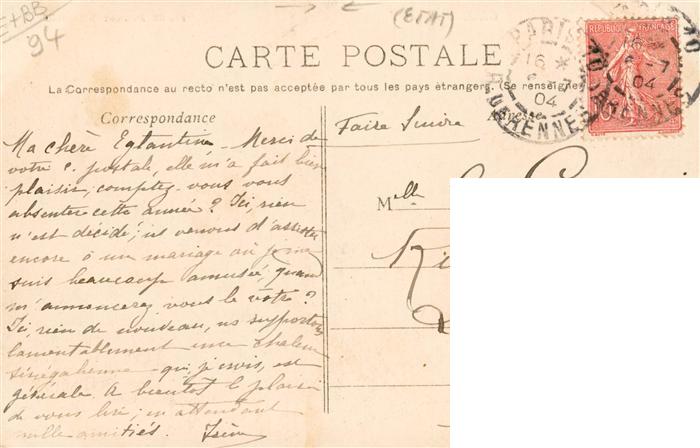 E+BB
94
(ETAT)
CARTE POSTALE
La Correspondance au recto n'est pas acceptée par tous les pays étrangers. (Se renseigne
Correspondance
Adresse
RÉPUBLIQUE FRANÇAISE
PARIS
16 * 
7
04
R. DU
Ma chère Eglantine Merci de
votre c. postale, elle m'a fait bien
plaisir, comptez-vous vous
absenter cette année? Ici, rien
n'est décidé; ns venons d'assister
encore à un mariage où je me
suis beaucoup amusée, quand
m'annoncerez vous le vôtre?
Ici, rien de nouveau, ns supportons
lamentablement une chaleur
sénégalienne qui, je crois, est
générale. A bientôt le plaisir
de vous lire; en attendant
mille amitiés.
Faire Suivre
Mlle